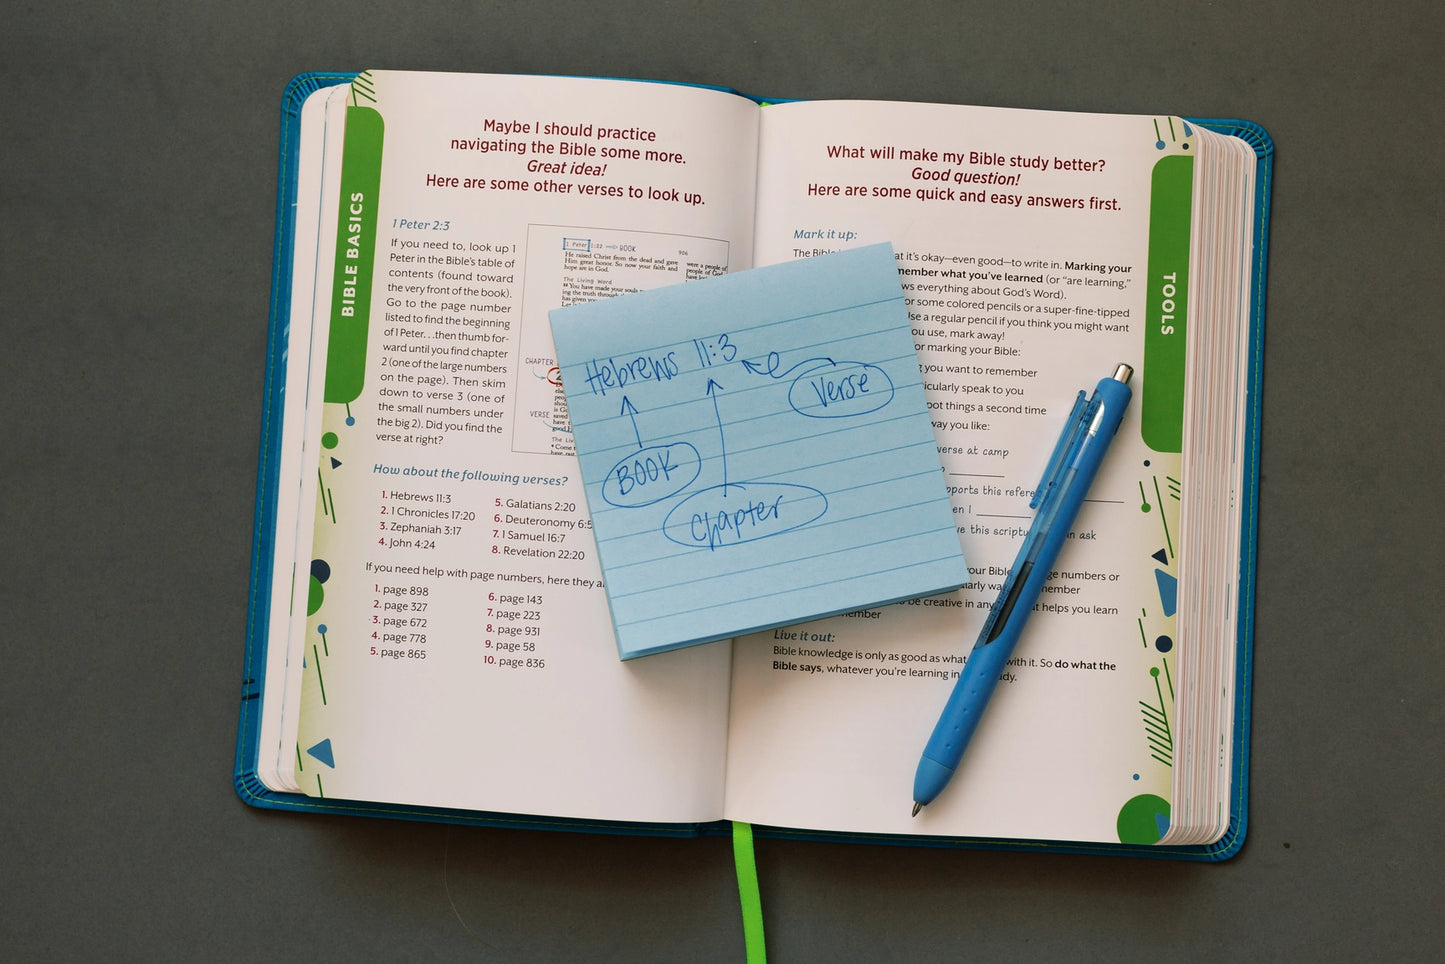 BIBLE BASICS
Maybe I should practice
navigating the Bible some more.
Great idea!
Here are some other verses to look up.
1 Peter 2:3
If you need to, look up 1
Peter in the Bible's table of
contents (found toward
the very front of the book).
Go to the page number
listed to find the beginning
of 1 Peter. . .then thumb for-
ward until you find chapter
2 (one of the large numbers
on the page). Then skim
down to verse 3 (one of
the small numbers under
the big 2). Did you find the
verse at right?
1 Peter 1:22 BOOK 906
He raised Christ from the dead and gave
Him great honor. So now your faith and
hope are in God.
The Living Word
22 You have made your souls
ing the truth through
has given
were a people of
people of God
CHAPTER
VERSE
How about the following verses?
1. Hebrews 11:3
2. 1 Chronicles 17:20
3. Zephaniah 3:17
4. John 4:24
5. Galatians 2:20
6. Deuteronomy 6:5
7. 1 Samuel 16:7
8. Revelation 22:20
If you need help with page numbers, here they
1. page 898
2. page 327
3. page 672
4. page 778
5. page 865
6. page 143
7. page 223
8. page 931
9. page 58
10. page 836
Hebrews 11:3
Verse
BOOK
Chapter
TOOLS
What will make my Bible study better?
Good question!
Here are some quick and easy answers first.
Mark it up:
The Bible
it's okay—even good—to write in. Marking your
member what you've learned (or "are learning,"
everything about God's Word).
or some colored pencils or a super-fine-tipped
Use a regular pencil if you think you might want
you use, mark away!
for marking your Bible:
you want to remember
speak to you
things a second time
way you like:
verse at camp
this
en I
this ask
your numbers or
be creative in any helps you learn
Live it out:
Bible knowledge is only as good as what with it. So do what the
Bible says, whatever you're learning in